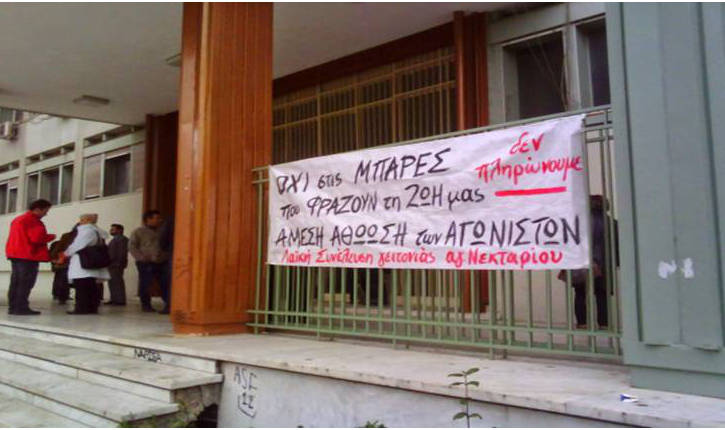 ΌΧΙ στις ΜΠΑΡΕΣ
που ΦΡΑΖΟΥΝ τη ΖΩΗ μας
ΑΜΕΣΗ ΑΘΩΩΣΗ των ΑΓΩΝΙΣΤΩΝ
Λαϊκή Συνέλευση γειτονιάς αγ Νεκταρίου
δεν
πληρώνουμε
ASF